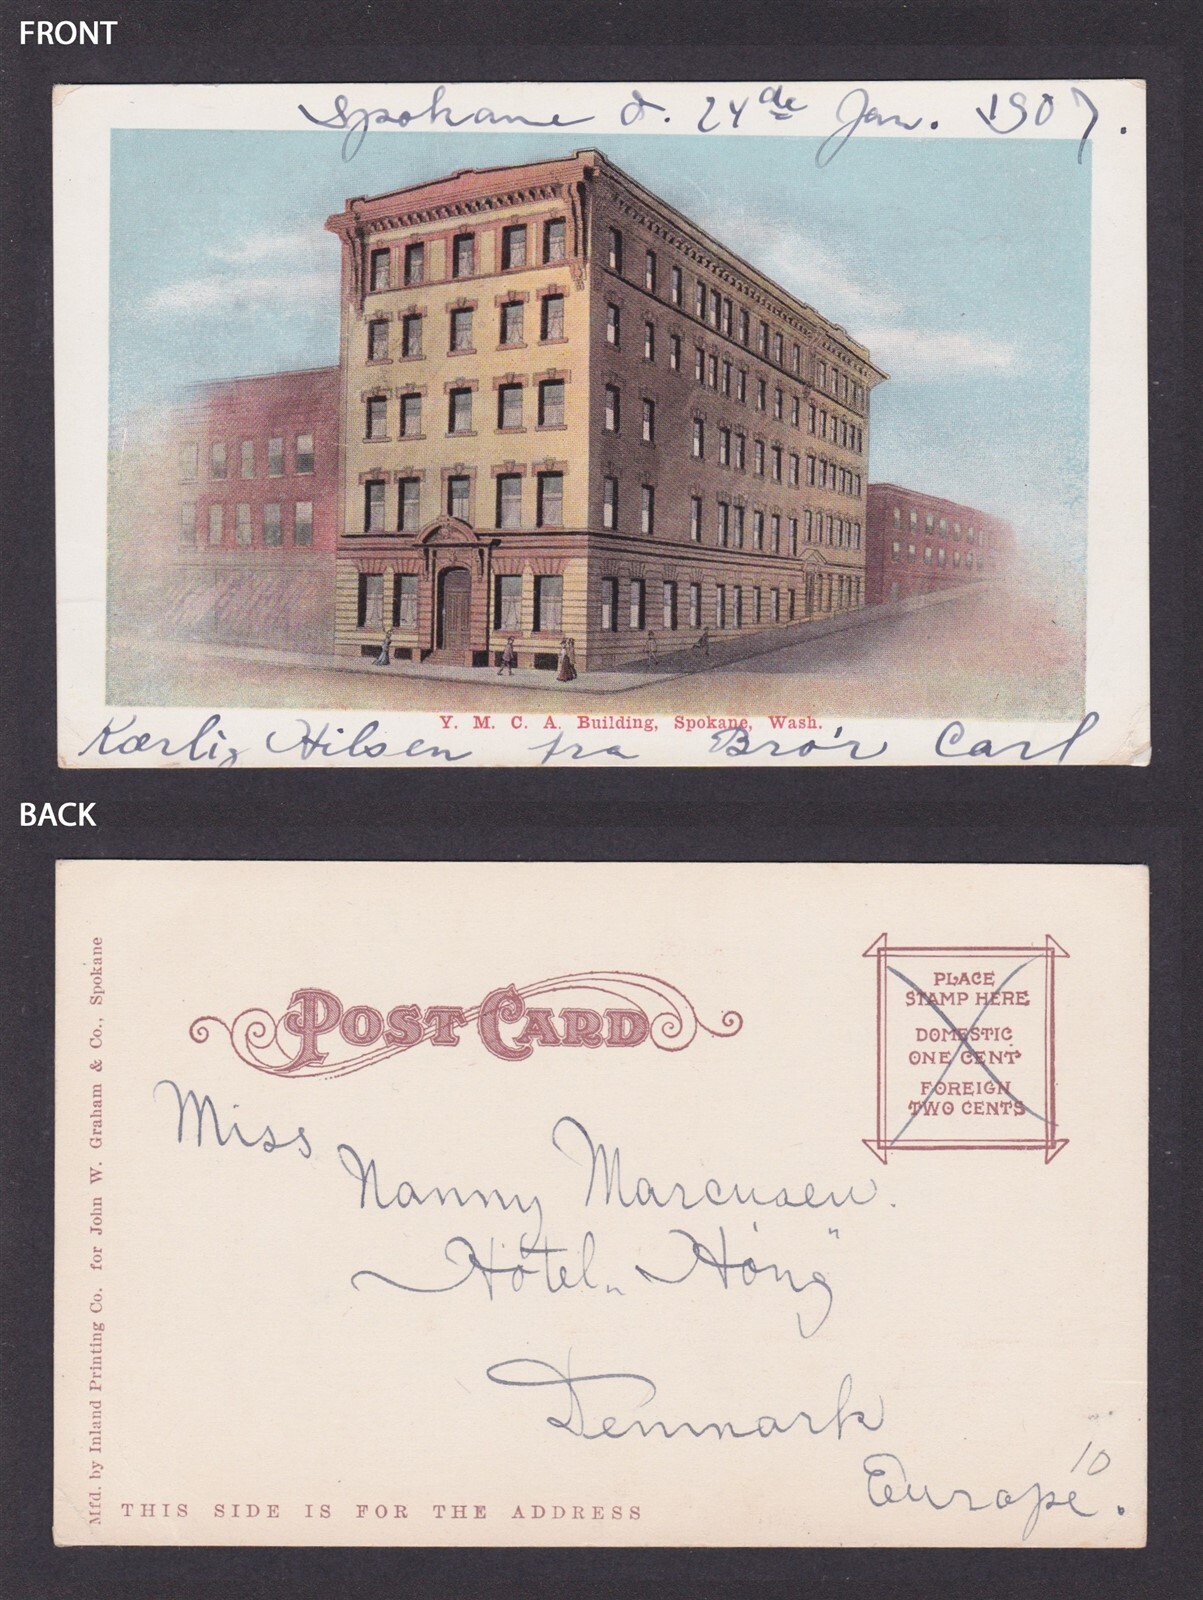 FRONT
Spokane d. 24de Jan. 1907.
Y. M. C. A. Building, Spokane, Wash.
Kærlig Hilsen fra Bro'r Carl
BACK
Mfd. by Inland Printing Co. for John W. Graham & Co., Spokane
POST CARD
PLACE
STAMP HERE
DOMESTIC
ONE CENT
FOREIGN
TWO CENTS
Miss
Nanny Marcusen.
Hôtel „Höng"
Denmark
Europe.
10
THIS SIDE IS FOR THE ADDRESS